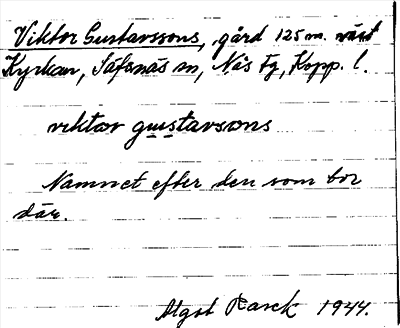 Viktor Gustavssons, gård 125 m. väst
Kyrkan, Säfsnäs sn, Nås fg, Kopp. l.
viktor gustavsons
Namnet efter den som bor
där.
Algot Rask 1944.